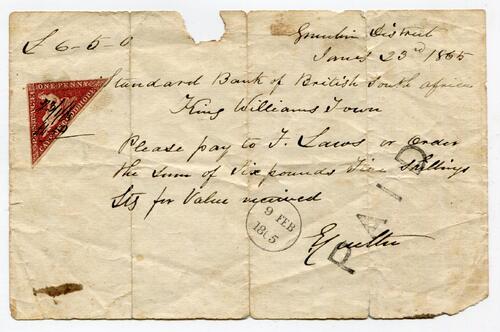 £ 6-5-0
District
Jany 23rd 1865
ONE PENNY
Standard Bank of British South Africa
King Williams Town
Please pay to J. Laws or Order
the Sum of Six pounds Five Shillings
Stg for Value received
9 FEB
1865
PAID